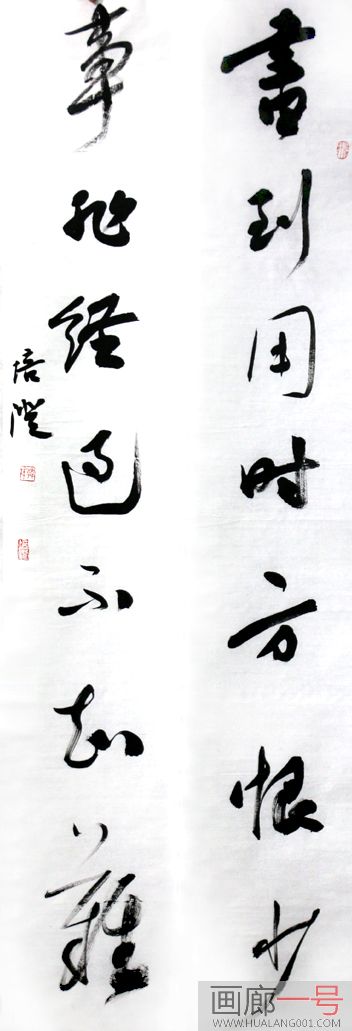 書到用时方恨少
事非经过不知難
培澄
画廊一号
WWW.HUALANG001.COM